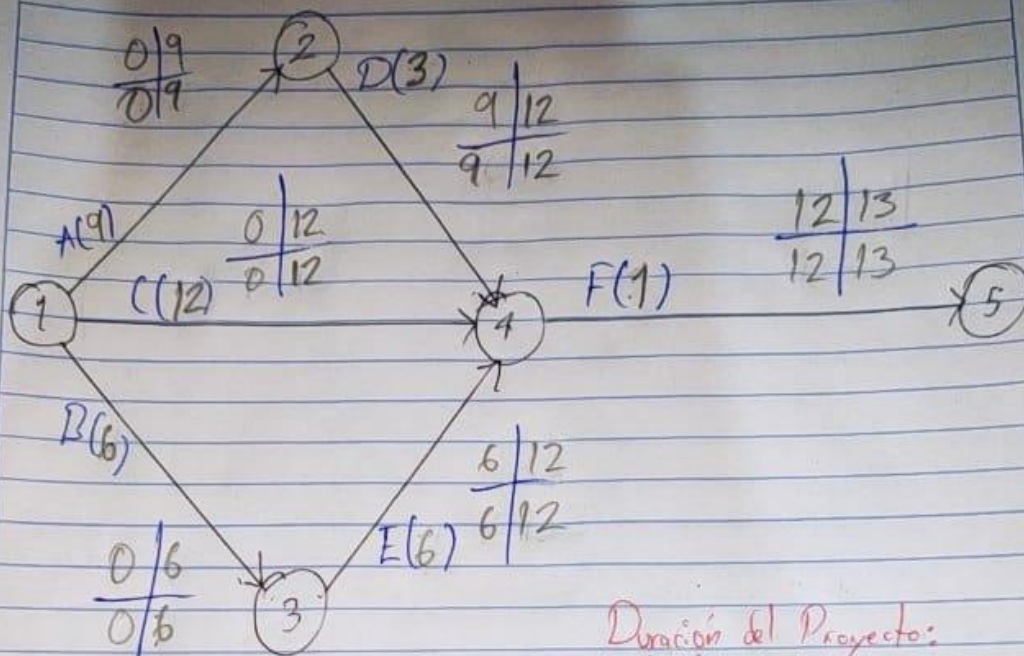 0 | 9
0 | 9
2
D(3)
9 | 12
9 | 12
A(9)
0 | 12
0 | 12
12 | 13
12 | 13
1
C(12)
4
F(1)
5
B(6)
6 | 12
6 | 12
E(6)
0 | 6
0 | 6
3
Duración del Proyecto: